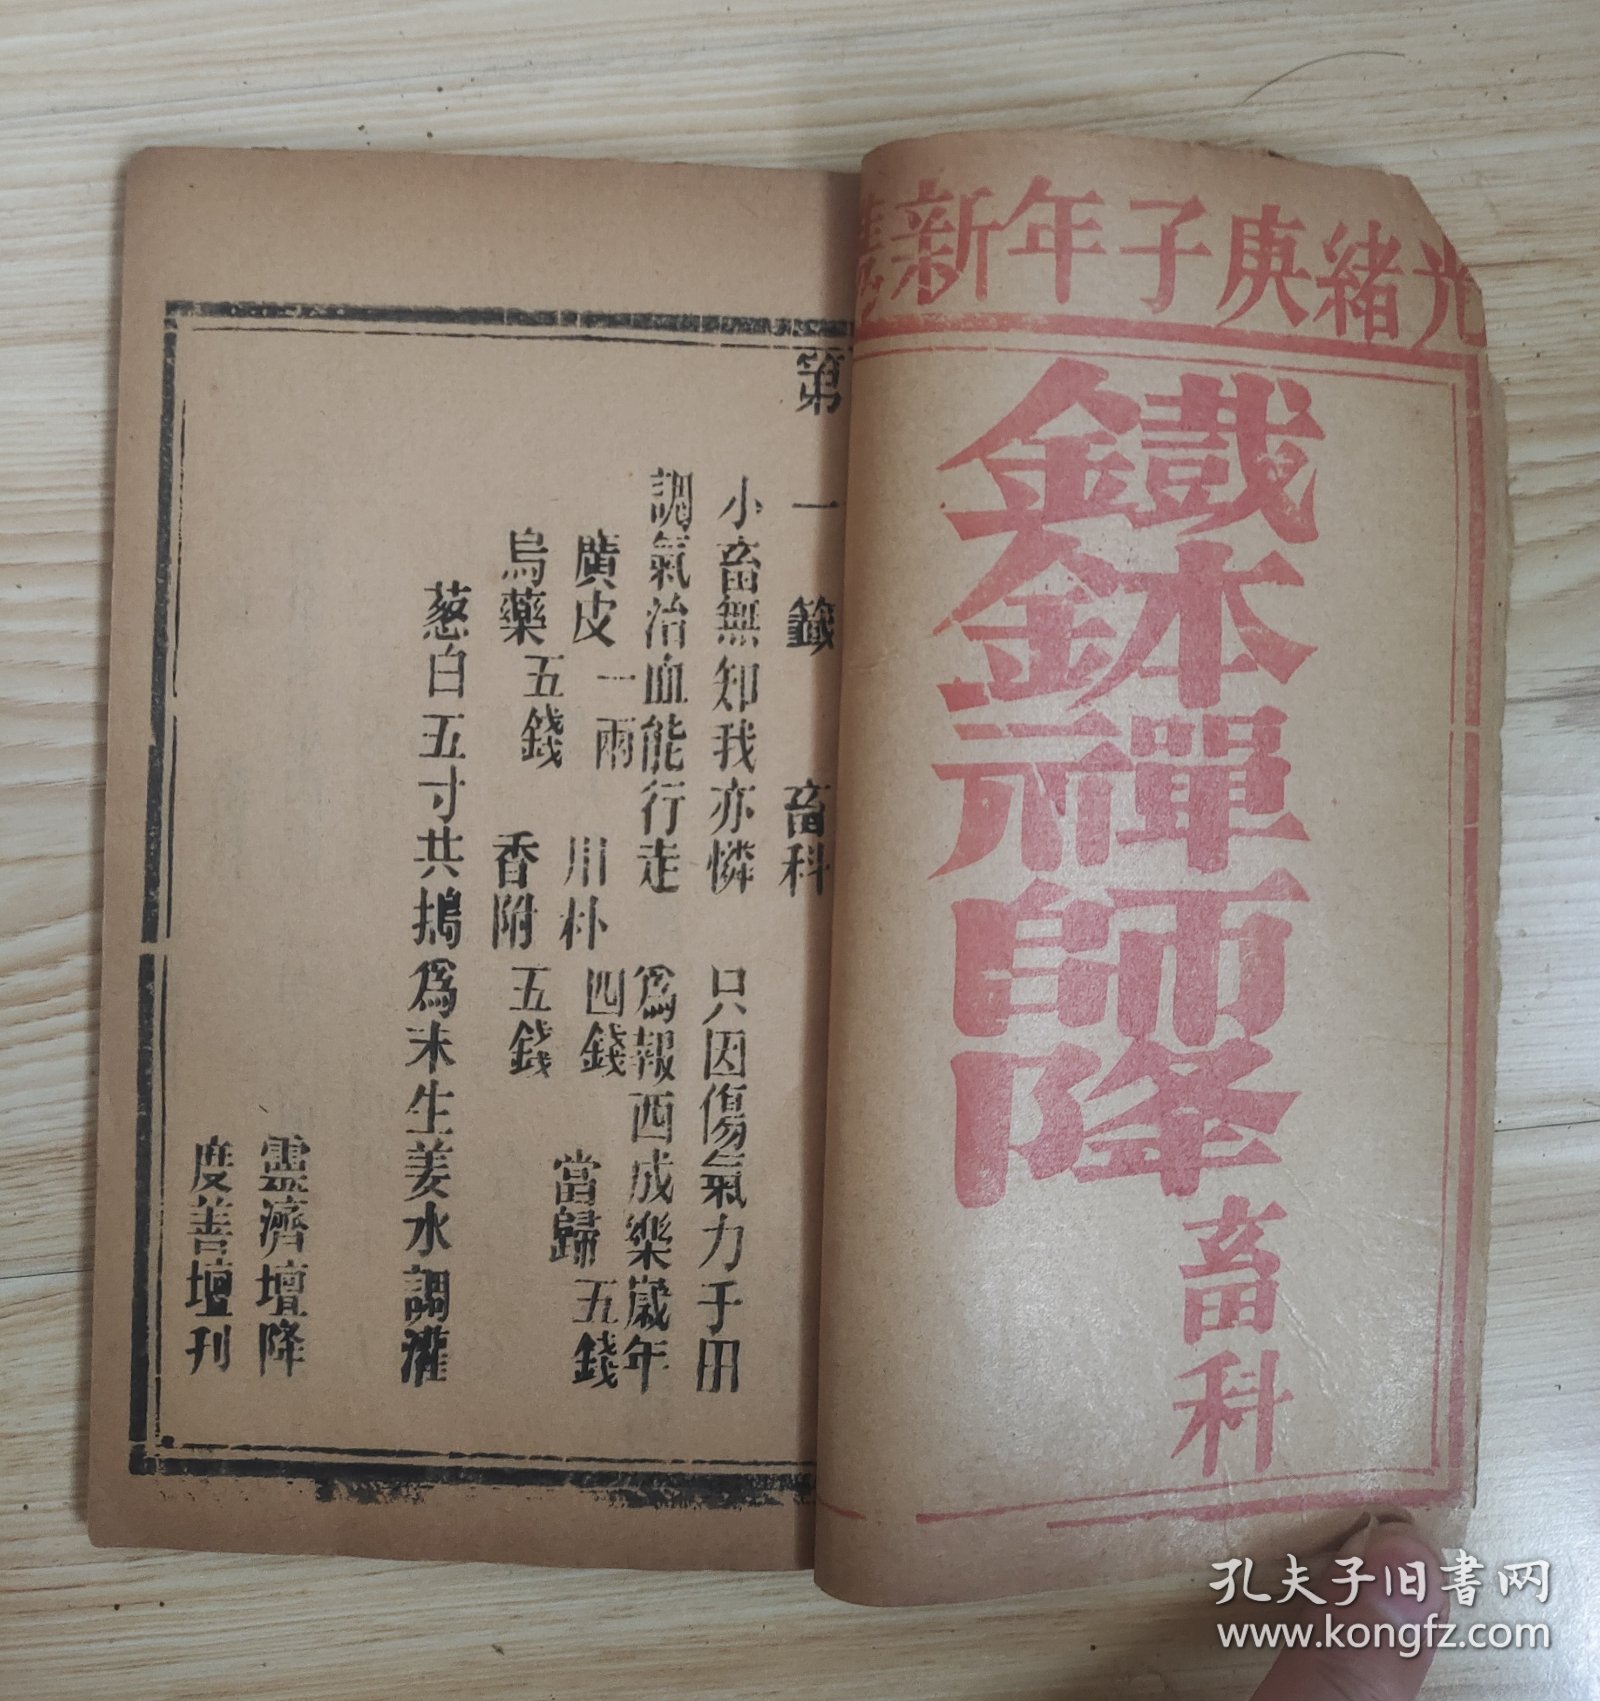 光緒庚子年新
鐵鉢禪師降
畜科
第一籤　畜科
小畜無知我亦憐　只因傷氣力于田
調氣治血能行走　爲報西成樂歲年
廣皮一兩　川朴四錢　當歸五錢
烏藥五錢　香附五錢
葱白五寸共搗爲末生姜水調灌
靈濟壇降
度善壇刊
孔夫子旧书网
www.kongfz.com